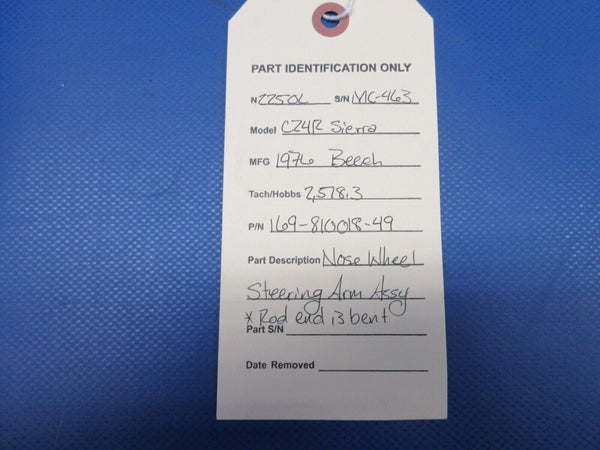 PART IDENTIFICATION ONLY
N 2250L S/N MC-463
Model C24R Sierra
MFG 1976 Beech
Tach/Hobbs 2,578.3
P/N 169-810018-49
Part Description Nose Wheel
Steering Arm Assy
* Rod end is bent
Part S/N
Date Removed